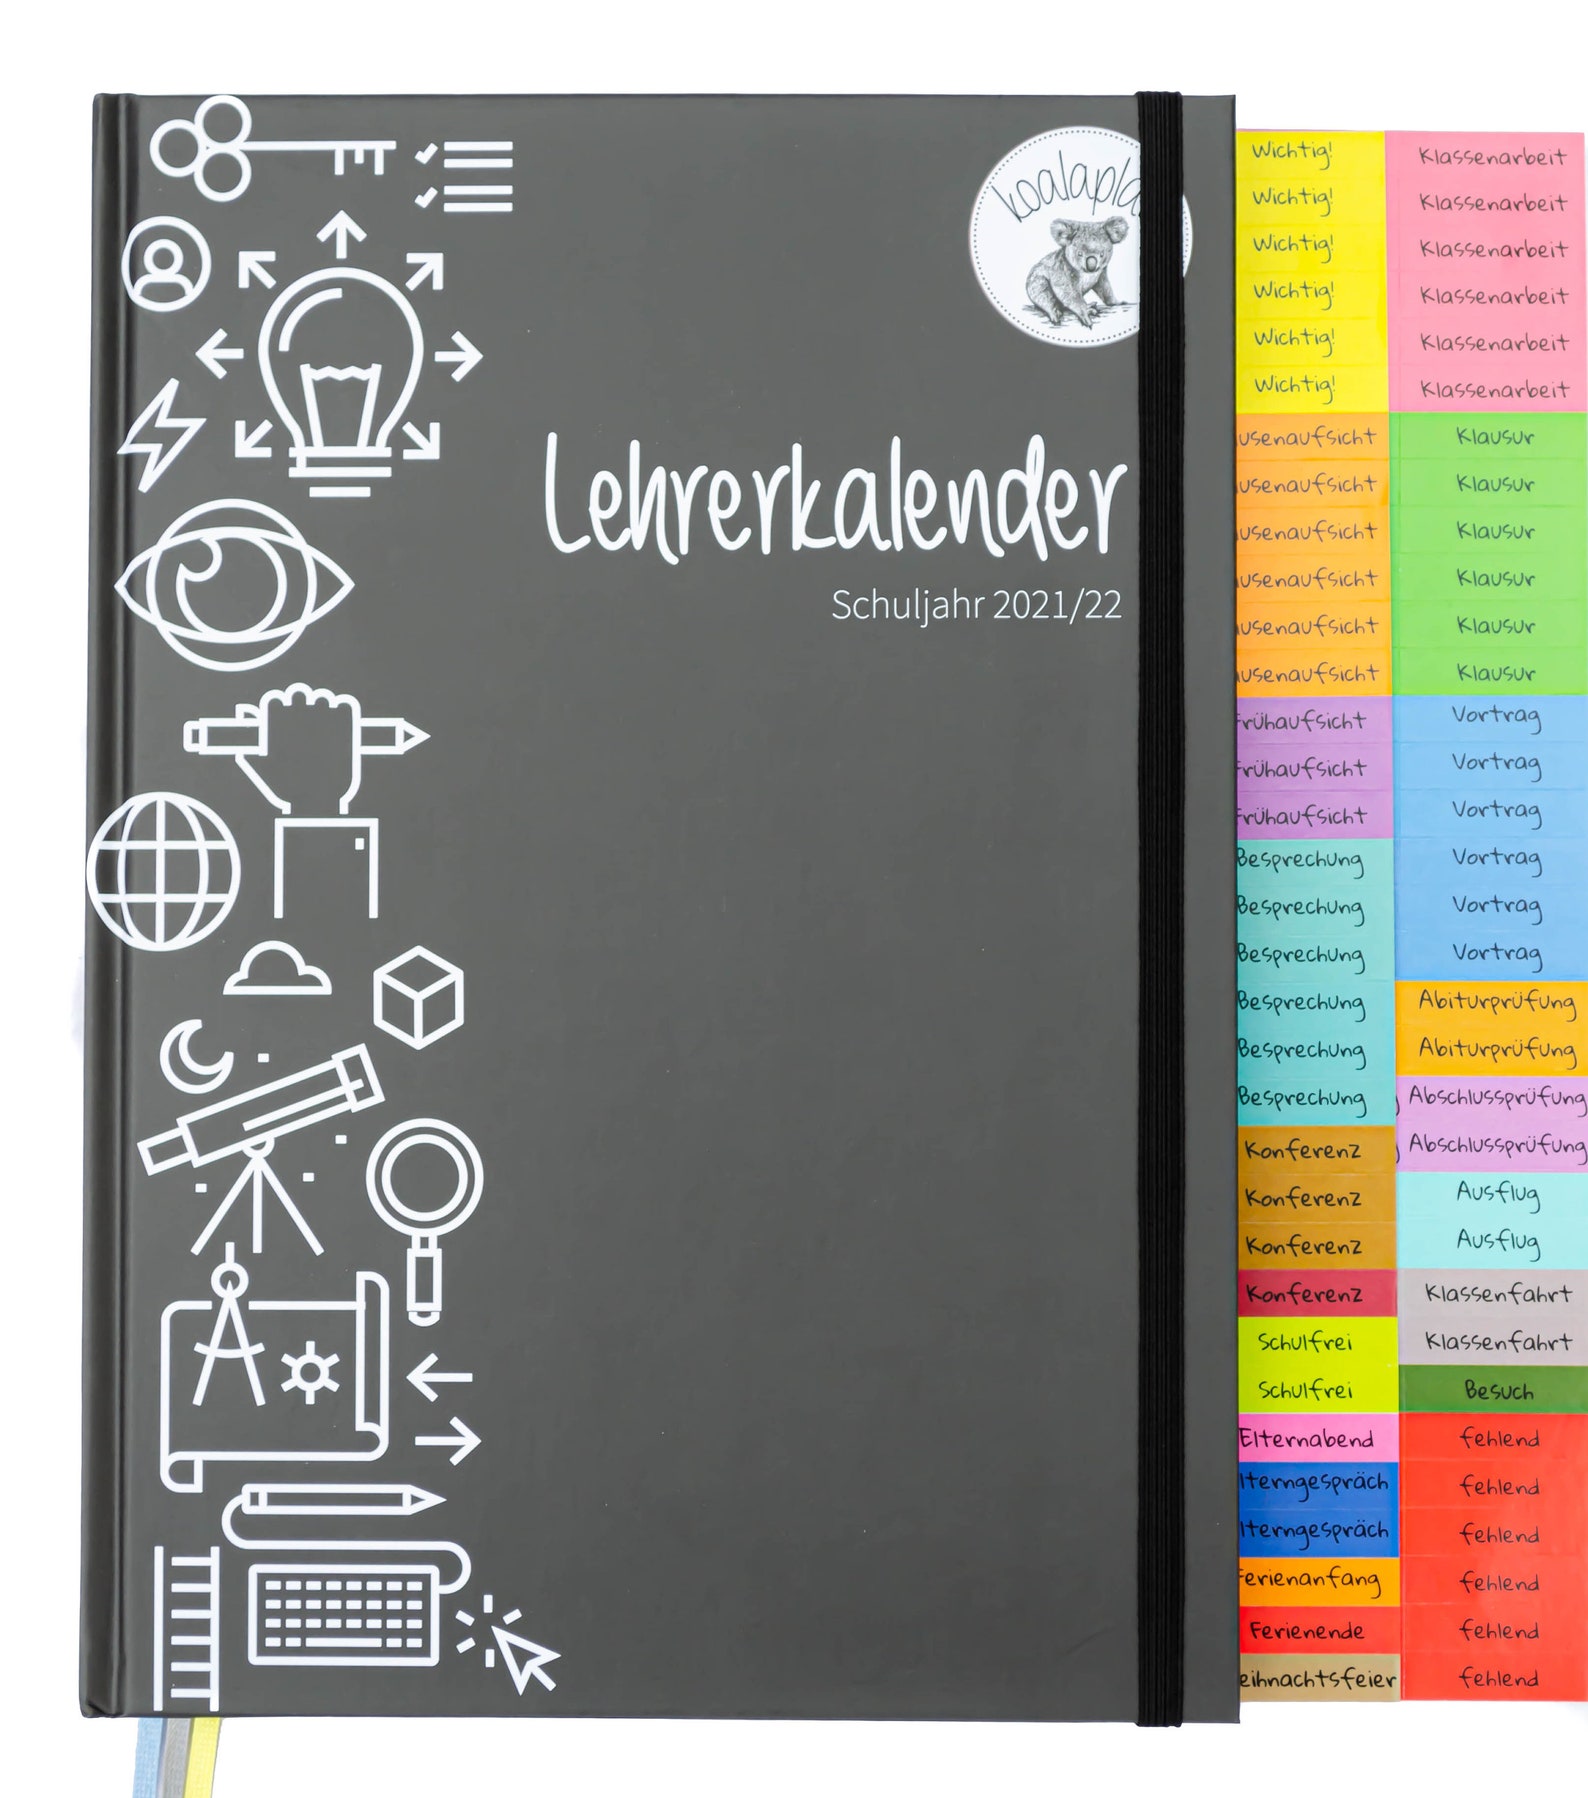 koalapla
Lehrerkalender
Schuljahr 2021/22
Wichtig!
Wichtig!
Wichtig!
Wichtig!
Wichtig!
Wichtig!
usenaufsicht
usenaufsicht
usenaufsicht
usenaufsicht
usenaufsicht
usenaufsicht
Frühaufsicht
Frühaufsicht
Frühaufsicht
Besprechung
Besprechung
Besprechung
Besprechung
Besprechung
Besprechung
Konferenz
Konferenz
Konferenz
Konferenz
Schulfrei
Schulfrei
Elternabend
lterngespräch
lterngespräch
Ferienanfang
Ferienende
eihnachtsfeier
Klassenarbeit
Klassenarbeit
Klassenarbeit
Klassenarbeit
Klassenarbeit
Klassenarbeit
Klausur
Klausur
Klausur
Klausur
Klausur
Klausur
Vortrag
Vortrag
Vortrag
Vortrag
Vortrag
Vortrag
Abiturprüfung
Abiturprüfung
Abschlussprüfung
Abschlussprüfung
Ausflug
Ausflug
Klassenfahrt
Klassenfahrt
Besuch
fehlend
fehlend
fehlend
fehlend
fehlend
fehlend